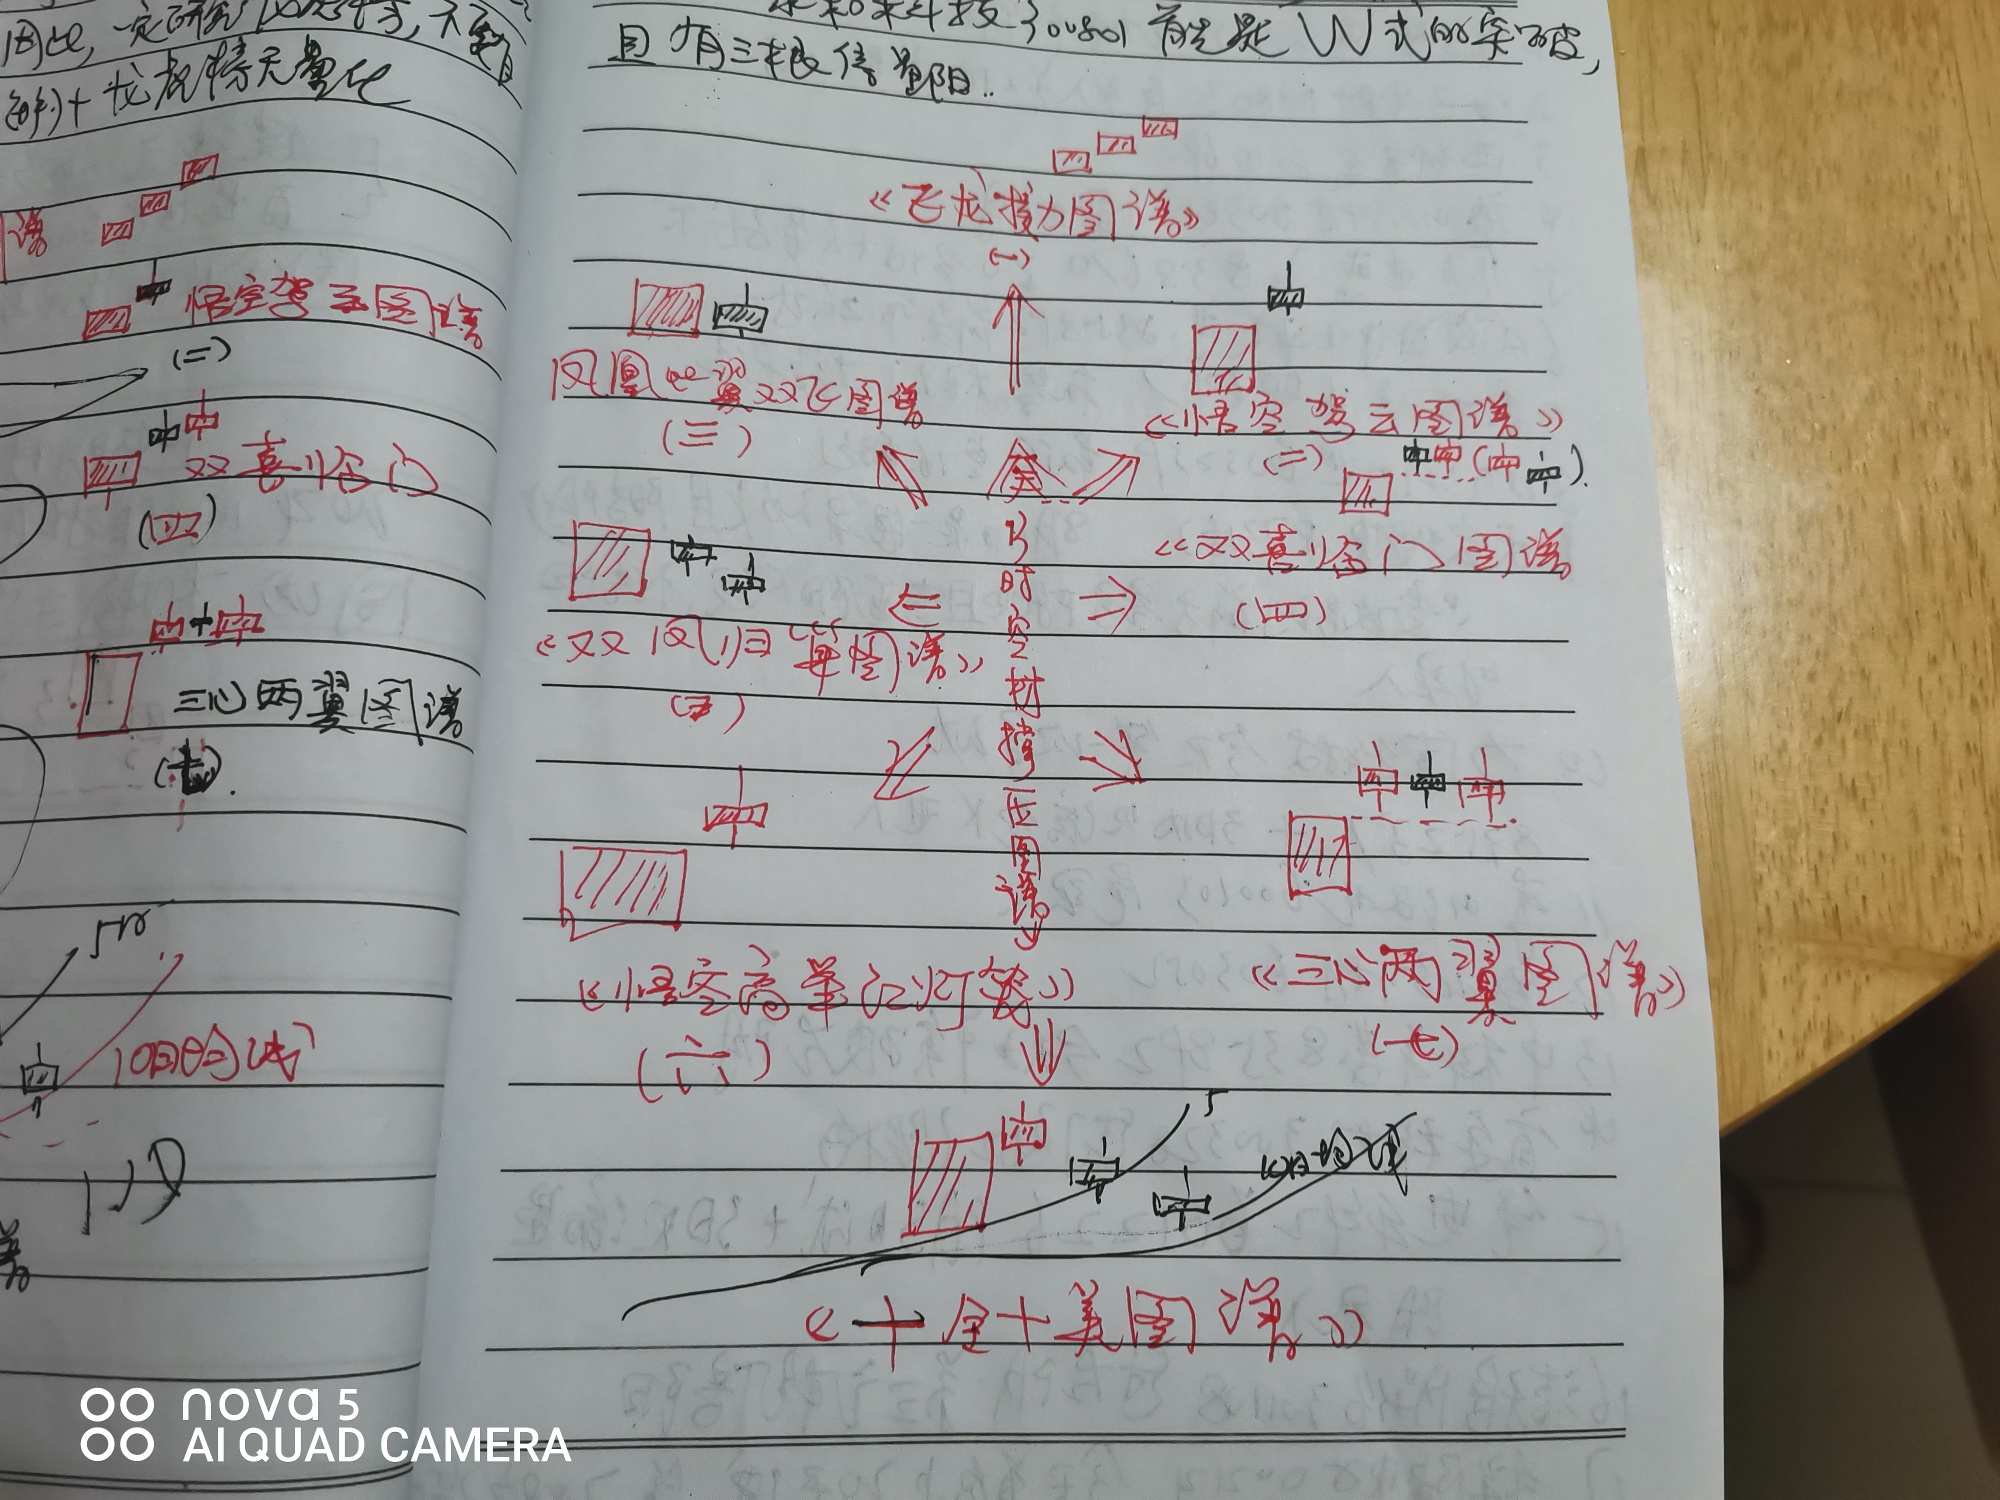 因此,一定研究
龙虎榜无量化
谱
悟空驾云图谱
(二)
双喜临门
(四)
三心两翼图谱
(七).
5日
10日均线
禾和科技300801 首先是W式的突破,
且有三根倍量阳..
《飞龙接力图谱》
(一)
凤凰比翼双飞图谱
(三)
《悟空驾云图谱》
(二)
全息时空村挡位图谱
《双喜临门图谱
(四)
《双凤归巢图谱》
(五)
《悟空高举红灯笼》
(六)
《三心两翼图谱》
(七)
5
10日均线
《十全十美图谱》
nova 5
AI QUAD CAMERA